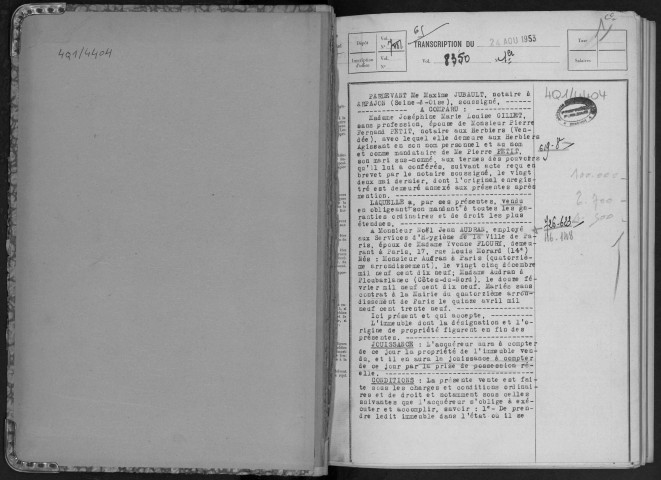 4Q1/4404
Dépôt
Vol.
N°
65
TRANSCRIPTION DU 24 AOU 1953
Vol. 8350 N°
Taxe
Salaires
4Q1/4404
PARDEVANT Me Maxime JUBAULT, notaire à
ARPAJON (Seine-&-Oise), soussigné,
A COMPARU :
Madame Joséphine Marie Louise GILLET,
sans profession, épouse de Monsieur Pierre
Fernand PETIT, notaire aux Herbiers (Ven-
dée), avec lequel elle demeure aux Herbiers
Agissant en son nom personnel et au nom
et comme mandataire de Me Pierre PETIT,
son mari sus-nommé, aux termes des pouvoirs
qu'il lui a conférés, suivant acte reçu en
brevet par le notaire soussigné, le vingt
deux mai dernier, dont l'original enregis-
tré est demeuré annexé aux présentes après
mention.
LAQUELLE a, par ces présentes, vendu
en obligeant son mandant à toutes les ga-
ranties ordinaires et de droit les plus
étendues.
A Monsieur Noël Jean AUDRAN, employé
aux Services d'Hygiène de la Ville de Pa-
ris, époux de Madame Yvonne FLOURY, demeu-
rant à Paris, 17, rue Louis Morard (14°)
Nés : Monsieur Audran à Paris (quatorziè-
me arrondissement), le vingt cinq décembre
mil neuf cent dix neuf; Madame Audran à
Ploubazlanec (Côtes-du-Nord), le douze fé-
vrier mil neuf cent dix neuf. Mariés sans
contrat à la Mairie du quatorzième arron-
dissement de Paris le quinze avril mil
neuf cent trente neuf.
Ici présent et qui accepte,
L'immeuble dont la désignation et l'o-
rigine de propriété figurent en fin des
présentes.
JOUISSANCE : L'acquéreur aura à compter
de ce jour la propriété de l'immeuble ven-
du, et il en aura la jouissance à compter
de ce jour par la prise de possession ré-
elle.
CONDITIONS : La présente vente est fai-
te sous les charges et conditions ordinai-
res et de droit et notamment sous celles
suivantes que l'acquéreur s'oblige à exé-
cuter et accomplir, savoir : 1°- De pren-
dre ledit immeuble dans l'état où il se
100.000
726-623